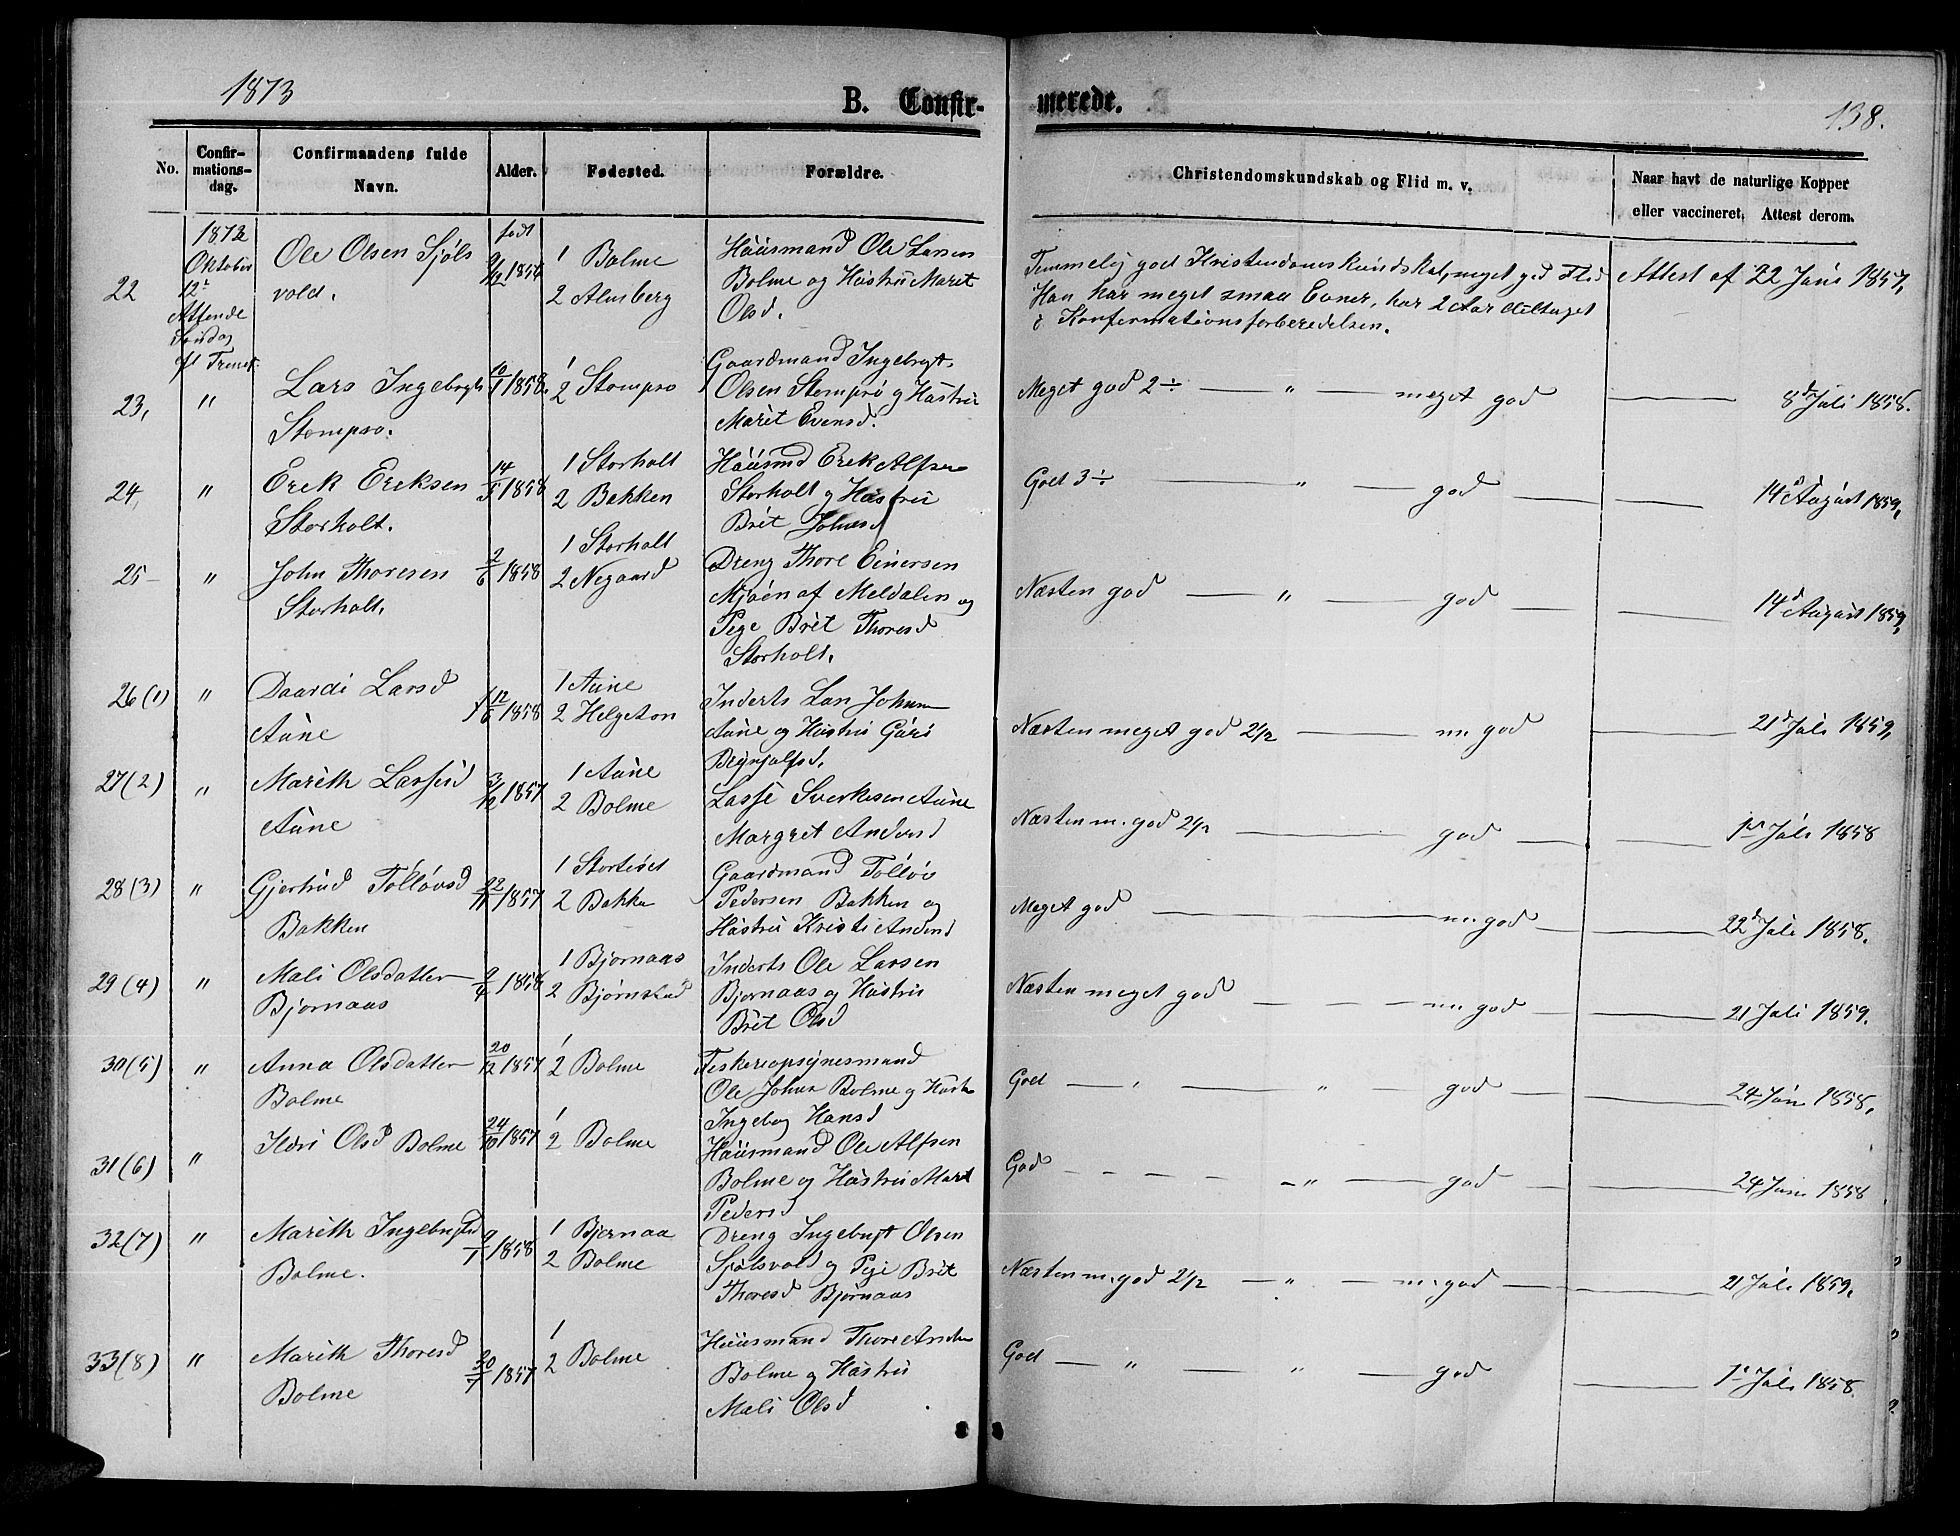 1873
B. Confir-
merede.
138.
No.
Confir-
mations-
dag.
Confirmandens fulde
Navn.
Alder.
Fødested.
Forældre.
Christendomskundskab og Flid m. v.
Naar havt de naturlige Kopper
eller vaccineret. Attest derom.
22
Oktober
12te
Attende
Søndag
Ole Olsen Sjøls
vold.
født
1 Bolme
2 Almberg
Huusmand Ole Larsen
Bolme og Hustru Maret
Olsd.
Temmelig god Kristendomskundskab, meget god Flid
Han har meget smaa Evner, har 2 Aar deltaget
i Konfermationsforberedelsen.
Attest af 22 Juni 1857,
23,
"
Lars Ingebrgts
Stompro.
10/1 1858.
1
2 Stompro
Gaardmand Ingebrgt
Olsen Stompro og Hustru
Marit Evensd.
Meget god 2÷ — " — meget god
8d Juli 1858.
24,
"
Erek Ereksen
Storholt.
14/5 1858
1 Storholt
2 Bakken
Huusmd Erek Alfsen
Storholt og Hustru
Brit Johnsd
God 3÷ — " — god
14d August 1859,
25 -
"
John Thoresen
Storholt.
2/6 1858
1 Storholt
2 Negaard
Dreng Thore Einersen
Mjøen af Meldalen og
Pige Brit Thoresd
Storholt.
Næsten god — " — god
14d August 1859,
26 (1)
"
Daardi Larsd
Aune
12/6 1858
1 Aune
2 Helgeton
Inderts Lars Johnsen
Aune og Hustru Guri
Næsten meget god 2 1/2 — m. god
21d Juli 1859,
27 (2)
"
Marith Lassesd
Aune
3/12 1857
1 Aune
2 Bolme
Lasse Sverkesen Aune
Margret Andersd
Næsten m. god 2 1/2 — god
1ste Juli 1858
28 (3)
"
Gjertrud Tølløvsd
Bakken
22/11 1857
2 Bakke
Gaardmand Tølløv
Pedersen Bakken og
Hustru Kristi Andersd
Meget god — m. god
22d Juli 1858.
29 (4)
"
Mali Olsdatter
Bjørnaas
2/4 1858
1 Bjørnaas
2 Bjørnstad
Inderts Ole Larsen
Bjørnaas og Hustru
Brit Olsd
Næsten meget god — — — m. god
21 Juli 1859.
30 (5)
"
Anna Olsdatter
Bolme
20/12 1857
1
2 Bolme
Feskereopsynesmand
Ole Johnsen Bolme og Hustru
Ingebog Hansd
God — " — " god
24 Juni 1858,
31 (6)
"
Kari Olsd Bolme
24/10 1857
1
2 Bolme
Huusmand Ole Alfsen
Bolme og Hustru Marit
Pedersd
God — — — — " — god
24 Juni 1858
32 (7)
"
Marith Ingebrgtsd
Bolme.
9/1 1858
1 Bjørnaa
2 Bolme
Dreng Ingebrgt Olsen
Sjølsvold og Pige Brit
Thoresd Bjørnaas
Næsten m. god 2 1/2 — " — m. god
21 Juli 1859,
33 (8)
"
Marith Thoresd
Bolme
20/7 1857
1
2 Bolme
Huusmand Thore Anders
Bolme og Hustru
Mali Olsd
God — " — " — god
1ste Juli 1858.